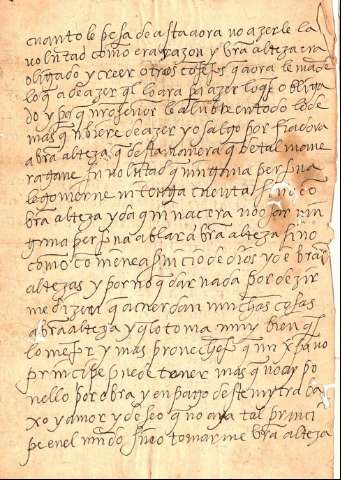 cuanto le pesa do asta aora no azerle la
volutad como era razon y vra alteza era
obligado y creer otros cosejos q aora le made
lo q a de azer q lo ara pa azer lo q es obliga
do y pa q nro senor le alubre en todo lo de
mas q ubiere de azer yo salgo por fiadora
a vra alteza q desta manera q de tal mane
ra gane su volutad q ninguna persona
le govierne ni tenga cuenta sino co
vra alteza y da qui nacera no osar nin
guna persona a ablar a vra alteza sino
como coviene a servicio de dios y de vras
altezas y por no qdar nada por dezir
me dizen q acuerdan muchas cosas
a vra alteza y q lo toma muy bien q es
lo mejor y mas provechoso q un xpiano
principe puede tener mas q no ay po
nello por obra y en pago deste my tra ba
xo y amor y deseo q no aya tal princi
pe en el mundo sino tomarme vra alteza